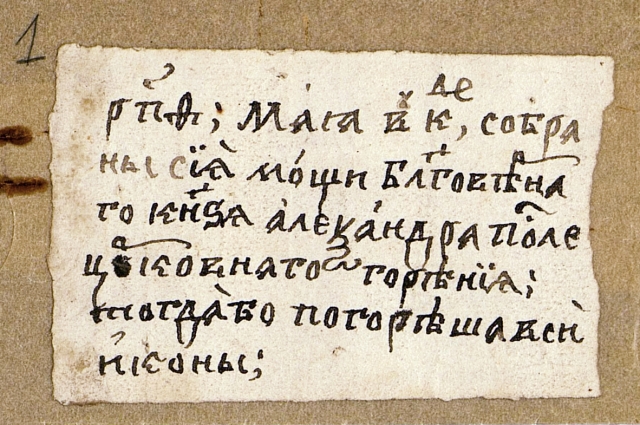 рп҃ѳ; маїа в҃ к҃ де, собра
ны сїѧ̀ мо́щи бл҃говѣрна
го кн҃ѕѧ алеѯа́ндра после
црковнаго згорѣнїѧ;
тогда̀ бо погорѣша всѝ
и҆коны;
1